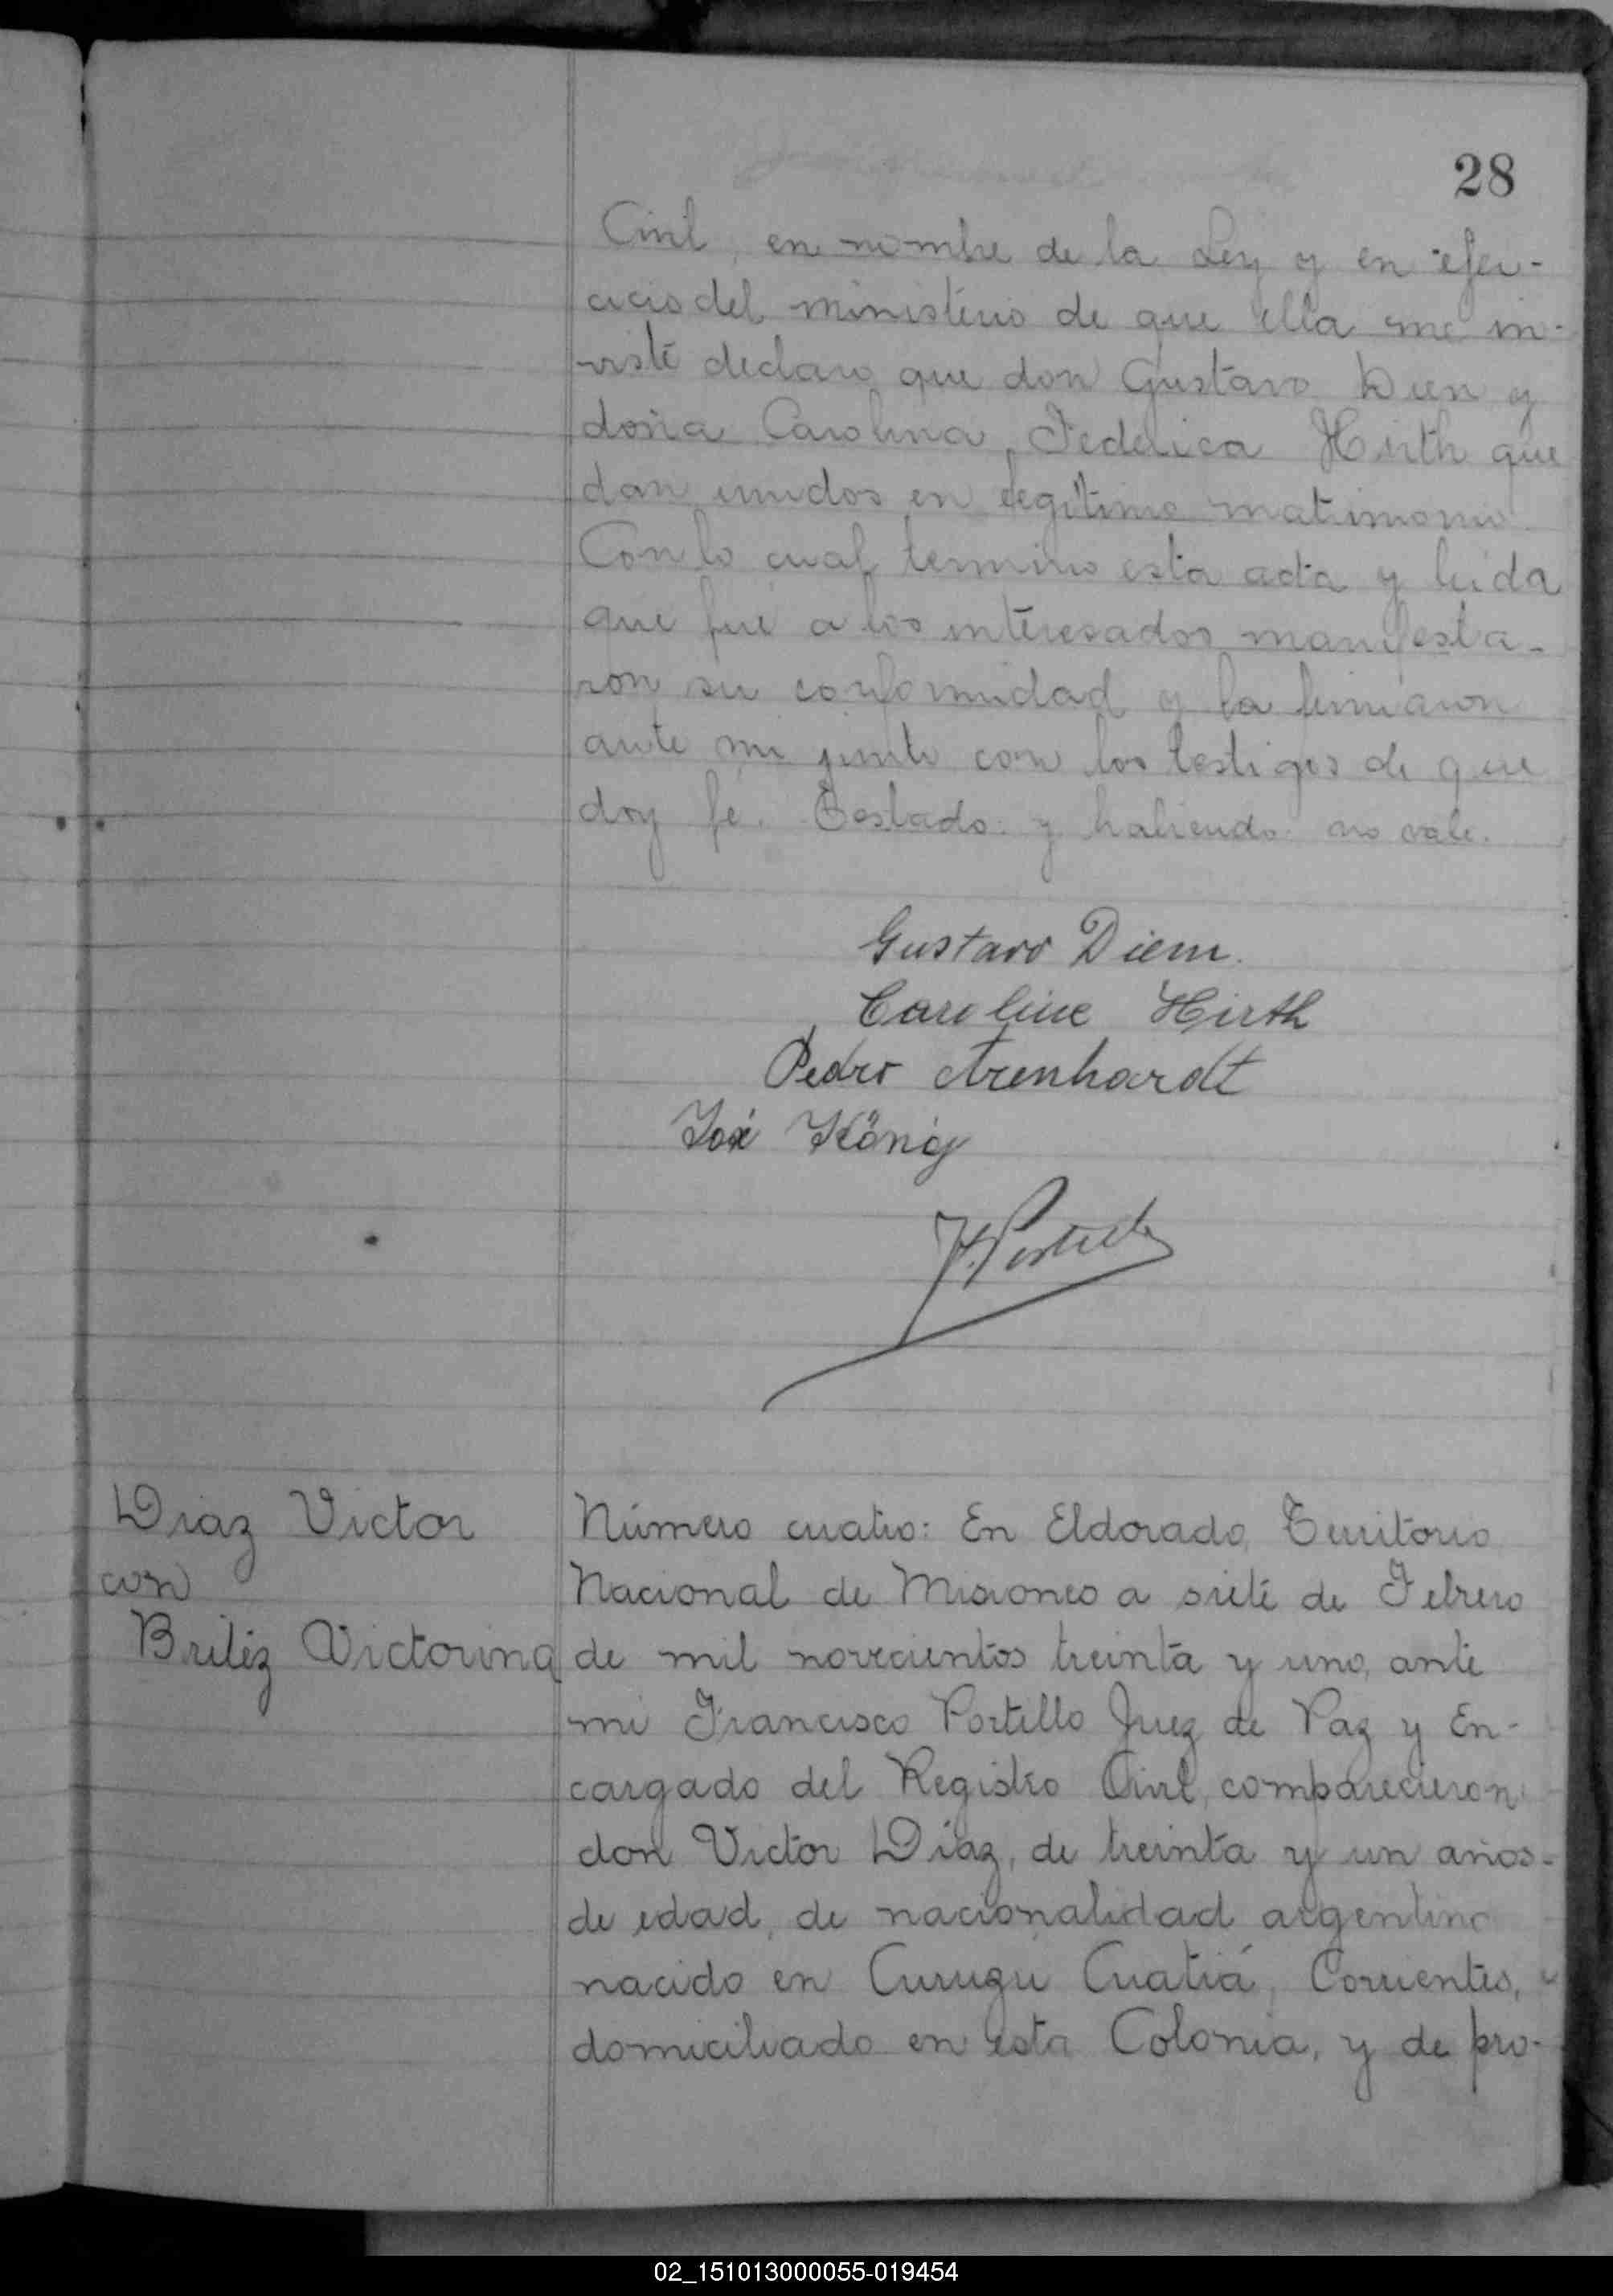 28
Civil, en nombre de la Ley y en ejer-
cicio del ministerio de que ella me in-
viste declaro que don Gustavo Diem y
doña Carolina Federica Hirth que
dan unidos en legítimo matrimonio.
Con lo cual termino esta acta y leida
que fué a los interesados manifesta-
ron su conformidad y la firmaron
ante mi junto con los testigos de que
doy fé. Testado: y habiendo: no vale.
Gustavo Diem.
Caroline Hirth
Pedro Arenhardt
José König
F. Portillo
Diaz Victor
con
Brítez Victorina
Número cuatro: En Eldorado, Territorio
Nacional de Misiones a siete de Febrero
de mil novecientos treinta y uno, ante
mi Francisco Portillo Juez de Paz y En-
cargado del Registro Civil, comparecieron
don Victor Díaz, de treinta y un años-
de edad, de nacionalidad argentino
nacido en Curuzu Cuatiá, Corrientes,
domiciliado en esta Colonia, y de pro-
02_151013000055-019454